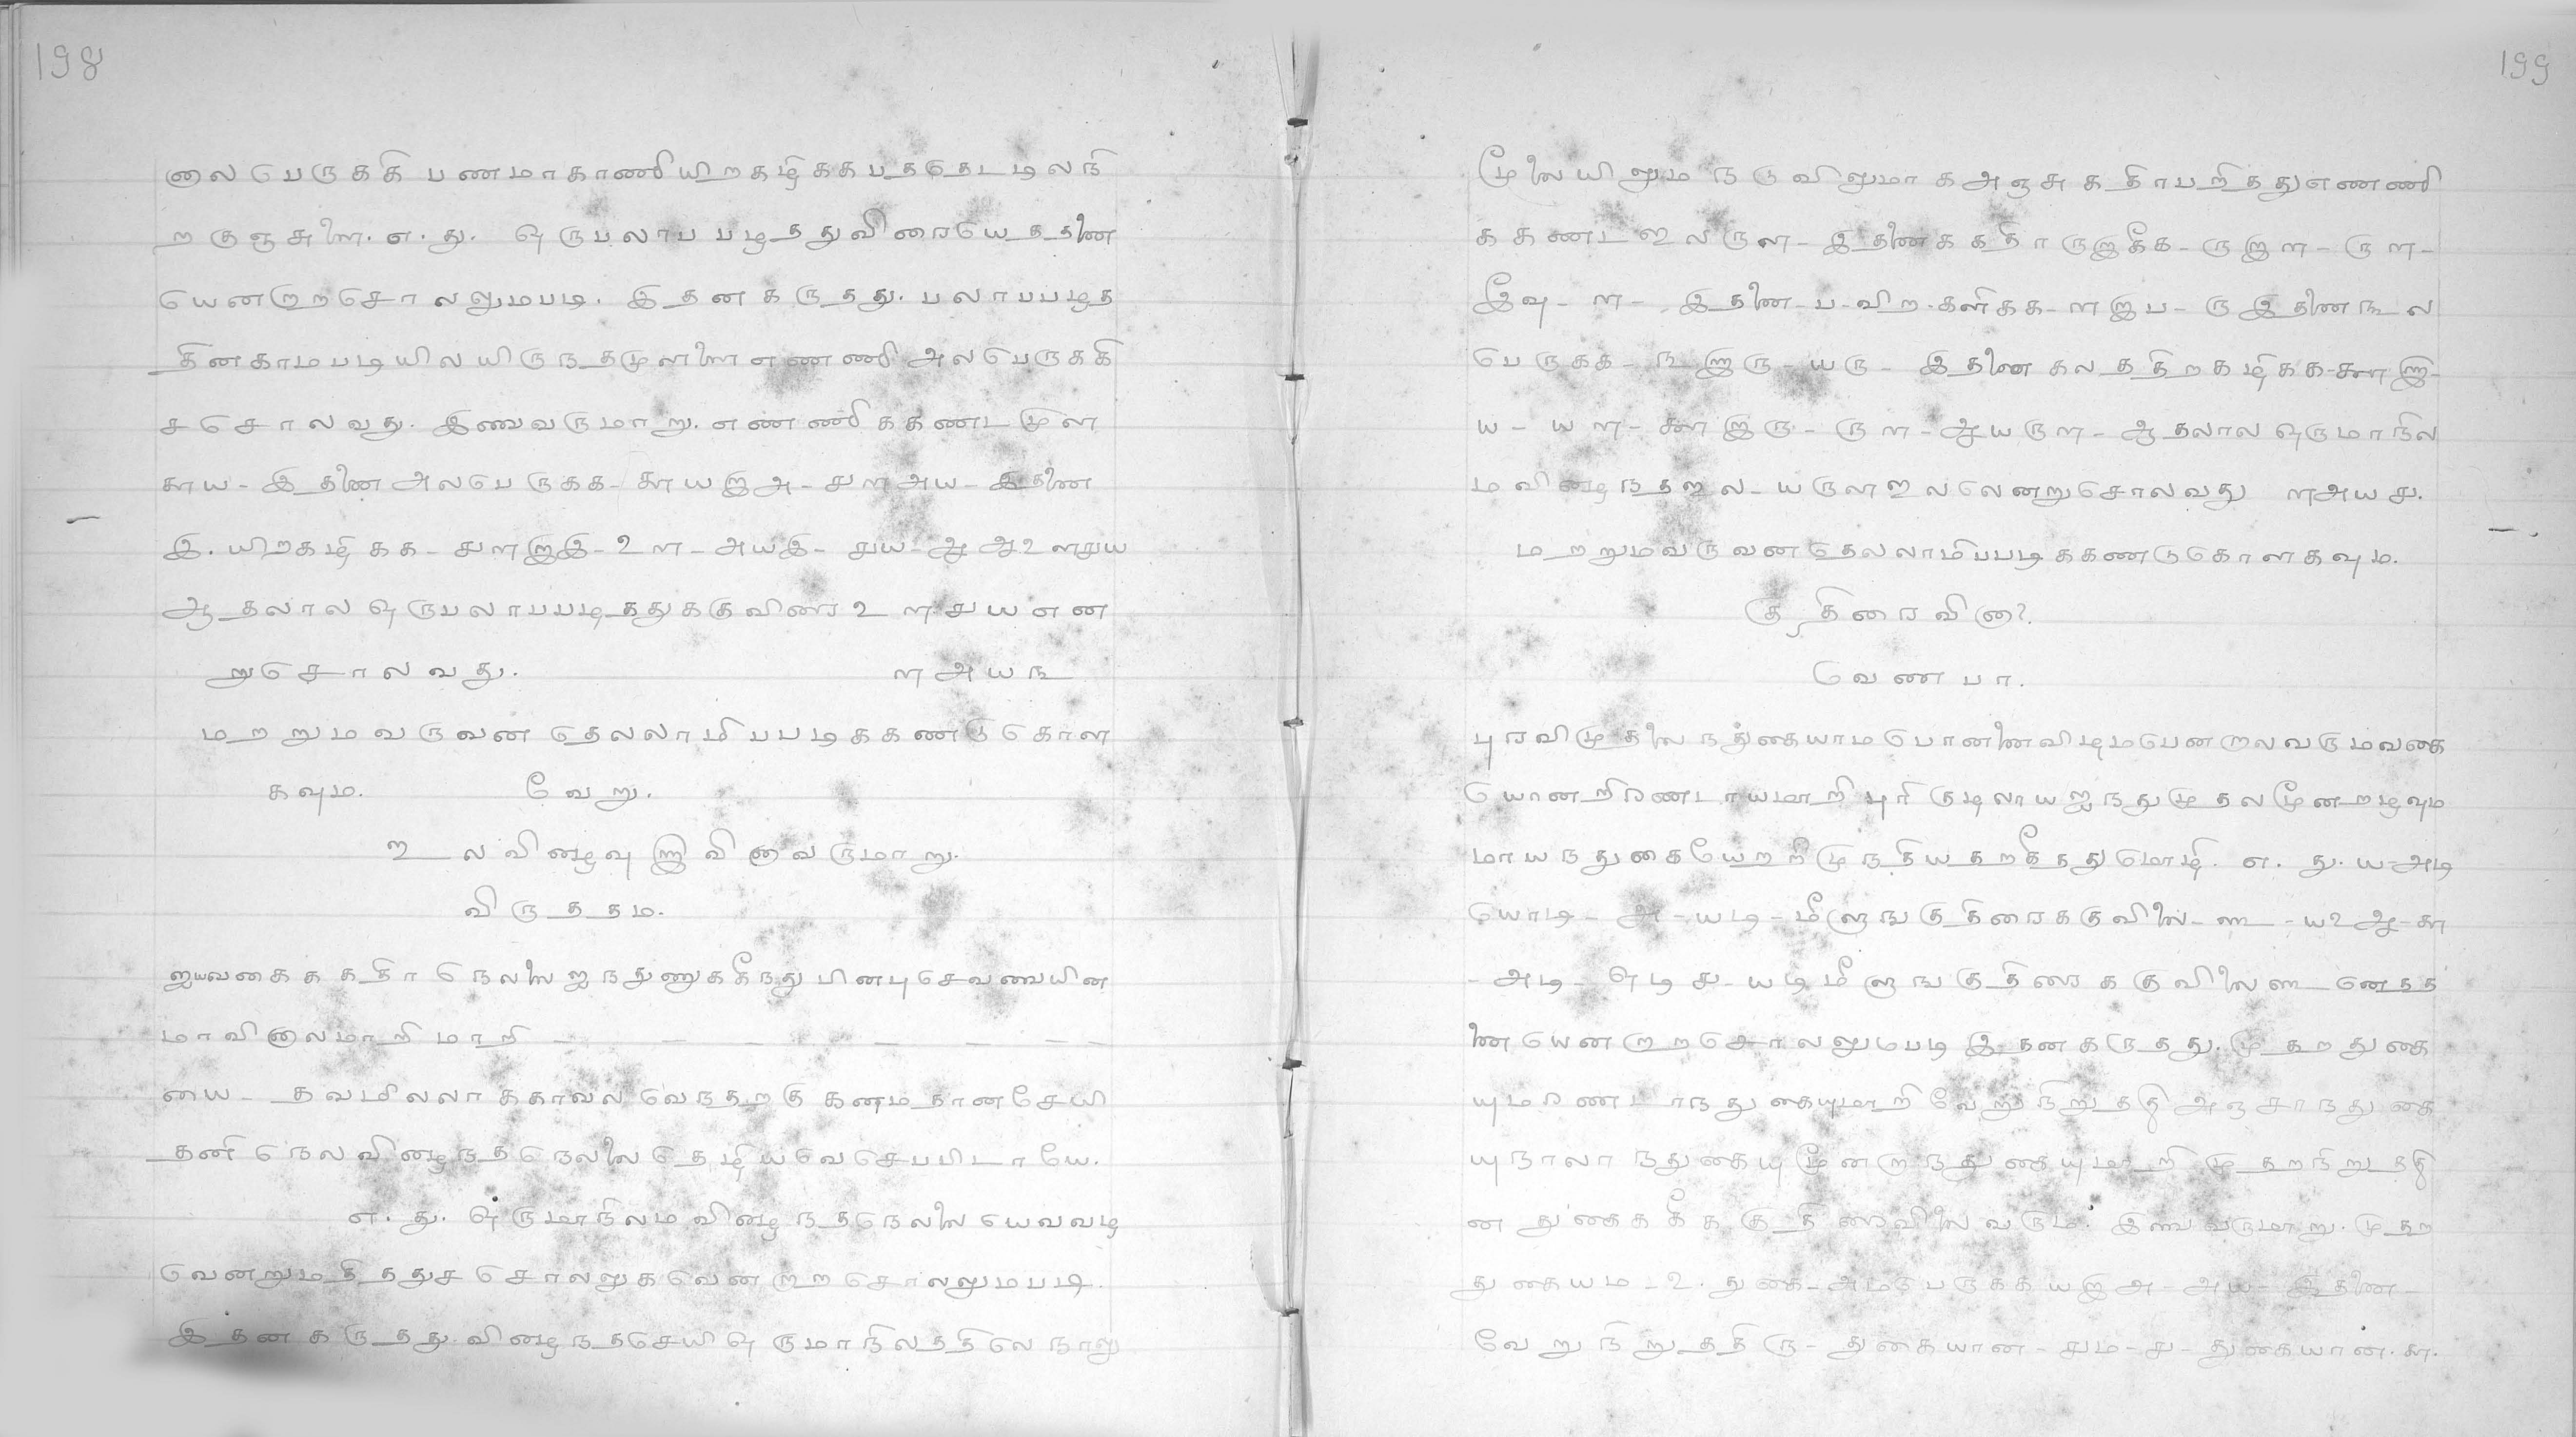 198
னால பெருககி பணமாகாணியிறகழிககபததெடடிலநி
றகுஞசுளை. எ. து. ஒருபலாப பழததுவிரையெததனை
யெனறாறசொலலுமபடி. இதனகருதது. பலாபபழத
தினகாமபடியிலயிருநதமுளளை எணணி அலபெருககி
சசொலவது. இவைவருமாறு. எணணிககணடமுள
௯ய - இதனை அலபெருகக - ௯யஇஅ - ௭ள௨ய - இதனை
ஆதலால ஒருபலாபபழததுககுவிரை ௨ ள ௪ ய எண
றுசொலவது. ள அ ய ௩
மறறுமவருவன தெலலாமிபபடிககணடுகொள
கவும. வேறு.
விருததம.
ஐயவகைக கதிர நெலலை ஐநதுணுககீநது பினபுசெவவையின
மாவிலைமாறி மாறி — — — — — — —
யை - தவமிலலா ககாவல வெநதறகு கணமதானசேயி
தனி நெலவிளைநதநெலலை தெழியவெசெபபிடாயே.
எ. து. ஒருமாநிலம விளைநதநெலலை யெவவடி
வெனறுமதிததுச சொலலுகவெனறாற சொலலுமபடி.
இதன கருதது. விளைநதசெயி ஒருமாநிலததிலெ நாலு
199
மூலையிலும நடுவிலுமாக அஞசு கதிரபறிதது எணணி
ககணடஇலருள - இதனைககதிர ருஇகீக - ருஇள - ருள -
இவு - ள - இதனை - ப - விற - களிகக - ளஇப - ரு இதனை௩ல
பெருகக - ௩இரு - யரு - இதனை கலததிறகழிகக - ௯ளஇ -
ய - யள - ௯ளஇரு - ருள - ஆயருள - ஆதலால ஒருமாநில
ம விளைநதஇல - யருளஇலலெனறுசொலவது ளஅய௪.
மறறுமவருவனதெலலாமிபபடிககணடுகொளகவும.
குதிரைவினா?
வெணபா.
புரவிமுதலைநதுகையாமபொனனைவிடிமபெனறாலவருமவகை
யொனறிரணடாயமாறி புரி குடிலாயஐநதுமுதலமூனறாழவும
மாயநதுகையேறறிமுநதியதறகீநதுமொழி. எ. து. ய-அடி
யொடி - அ - யடி - மீளுஙகுதிரைககுவிலை - ௱ - ய௨ ஆ - ௯
- அடி - ஒடி ௪ - யடி மீளுஙகுதிரைககுவிலை ௱ னெதத
னையெனறாறசொலலுமபடி இதனகருதது. முதறதுகை
யுமிரணடாநதுகையுமாறி வேறுநிறுததி அஞசாநதுகை
யுநாலாநதுகையுமூனறாநதுகையுமாறி முதறநிறுததி
ன துகைககீக குதிரைவிலைவரும. இவைவருமாறு. முதற
துகையம - ௨. துகை - அமபெருகக யஇஅ - அய - இதனை -
வேறுநிறுததி ரு - துகையான - ௭ம - ௪ - துகையான. ௯.